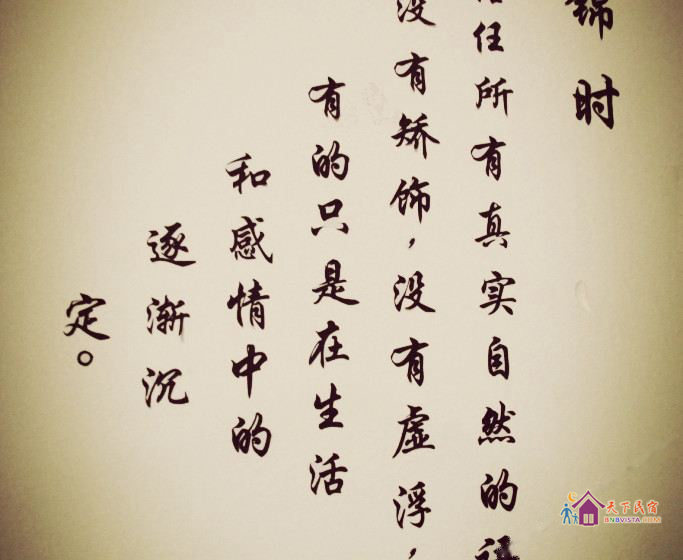 锦时
任所有真实自然的
没有矫饰,没有虚浮,
有的只是在生活
和感情中的
逐渐沉
定。
天下民宿
BNBVISTA.COM